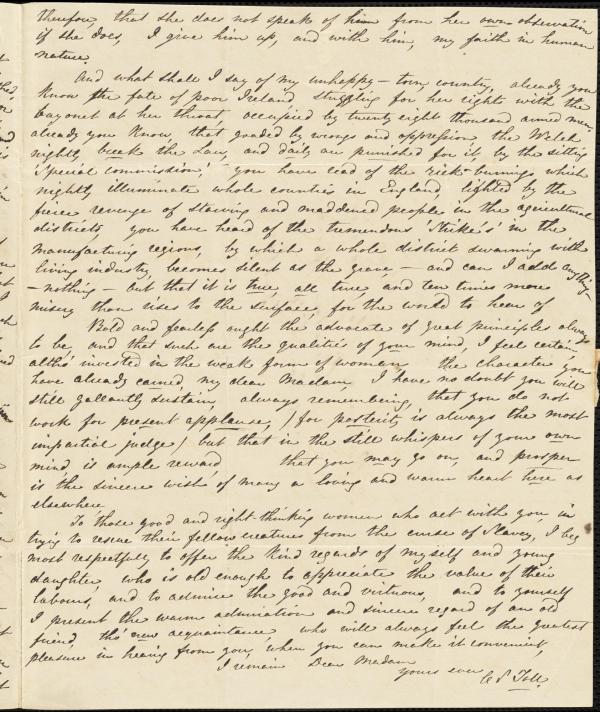 therefore, that she does not speak of him from her own observation
if she does, I give him up, and with him, my faith in human
nature.
And what shall I say of my unhappy – torn country, already you
know the fate of poor Ireland struggling for her rights with the
bayonet at her throat, occupied by twenty eight thousand armed men,
already you know, that goaded by wrongs and oppression the Welch
nightly break the Law, and daily are punished for it by the sitting
Special commission, – you have read of the rick-burnings which
nightly illuminate whole counties in England, lighted by the
fierce revenge of starving and maddened people in the agricultural
districts, you have heard of the tremendous 'Strike's' in the
manufacturing regions, by which a whole district swarming with
living industry, becomes silent as the grave – and can I add anything –
– nothing – but that it is true, all true, and ten times more
misery than rises to the surface, for the world to hear of
Bold and fearless ought the advocate of great principles always
to be, and that such are the qualities of your mind, I feel certain,
altho' invested in the weak form of woman, the character you
have already earned, my dear Madam, I have no doubt you will
still gallantly sustain, always remembering, that you do not
work for present applause, (for posterity is always the most
impartial judge) but that in the still whispers of your own
mind, is ample reward, that you may go on, and prosper
is the sincere wish of many a loving and warm heart here as
elsewhere.
To those good and right-thinking women who act with you, in
trying to rescue their fellow creatures from the curse of Slavery, I beg
most respectfully to offer the kind regards of myself and young
daughter, who is old enough to appreciate the value of their
labours, and to admire the good and virtuous, and to yourself
I present the warm admiration and sincere regard of an old
friend, tho' new acquaintance, who will always feel the greatest
pleasure in hearing from you, when you can make it convenient,
I remain Dear Madam
yours ever